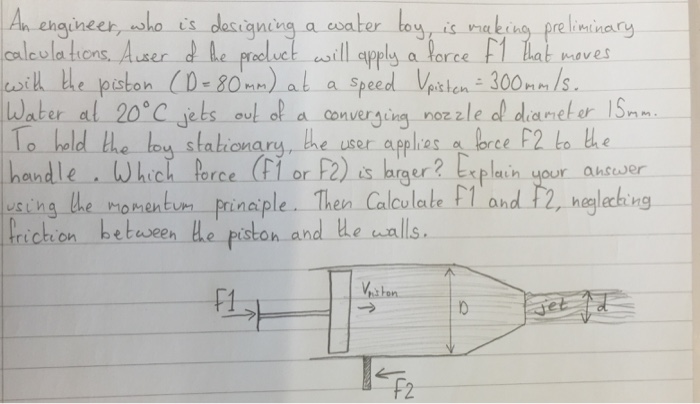 An engineer, who is designing a water toy, is making preliminary
calculations. A user of the product will apply a force F1 that moves
with the piston (D = 80mm) at a speed Vpiston = 300mm/s.
Water at 20°C jets out of a converging nozzle of diameter 15mm.
To hold the toy stationary, the user applies a force F2 to the
handle. Which force (F1 or F2) is larger? Explain your answer
using the momentum principle. Then Calculate F1 and F2, neglecting
friction between the piston and the walls.
F1
Vpiston
D
jet
d
F2